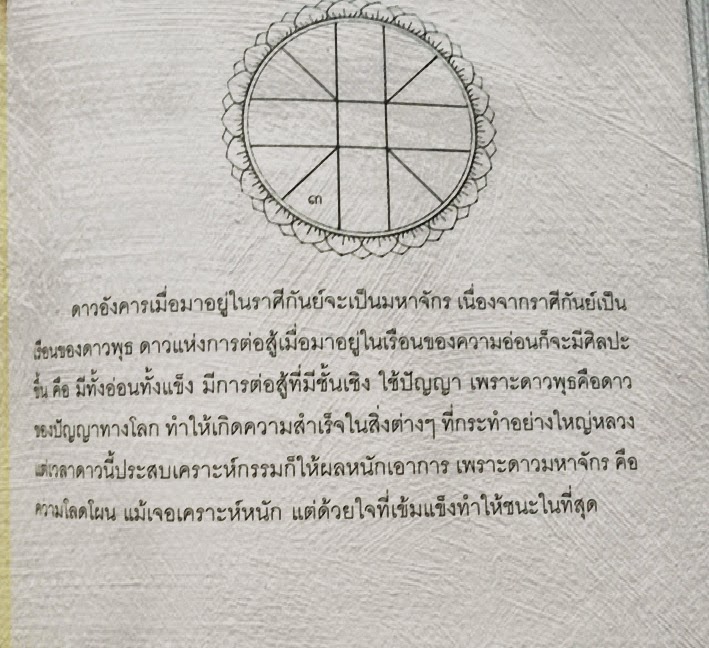 ๓
ดาวอังคารเมื่อมาอยู่ในราศีกันย์จะเป็นมหาจักร เนื่องจากราศีกันย์เป็น
เรือนของดาวพุธ ดาวแห่งการต่อสู้เมื่อมาอยู่ในเรือนของความอ่อนก็จะมีศิลปะ
ขึ้น คือ มีทั้งอ่อนทั้งแข็ง มีการต่อสู้ที่มีชั้นเชิง ใช้ปัญญา เพราะดาวพุธคือดาว
ของปัญญาทางโลก ทำให้เกิดความสำเร็จในสิ่งต่างๆ ที่กระทำอย่างใหญ่หลวง
แต่เวลาดาวนี้ประสบเคราะห์กรรมก็ให้ผลหนักเอาการ เพราะดาวมหาจักร คือ
ความโลดโผน แม้เจอเคราะห์หนัก แต่ด้วยใจที่เข้มแข็งทำให้ชนะในที่สุด